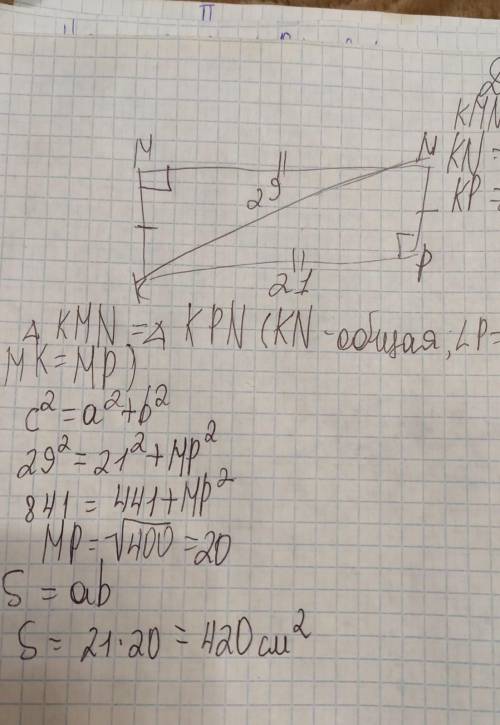 KMN
M N KN =
29 KP =
K 21 P
Δ KMN = Δ KPN (KN - общая, ∠P =
MK = MP)
c² = a² + b²
29² = 21² + MP²
841 = 441 + MP²
MP = √400 = 20
S = ab
S = 21·20 = 420 см²